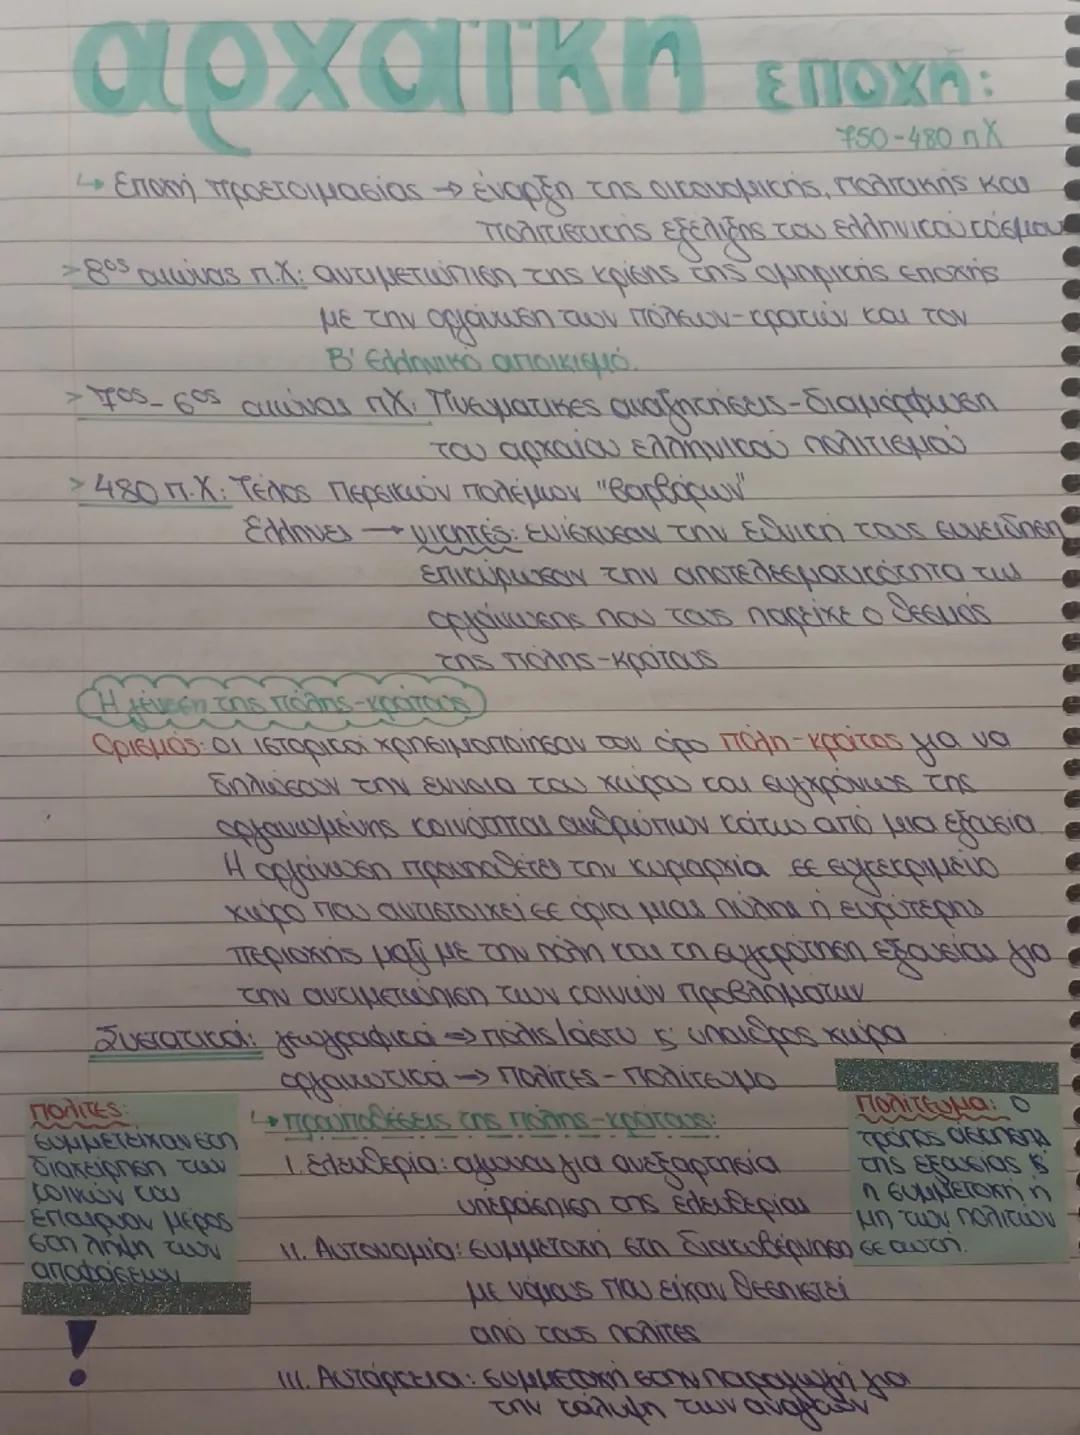 αρχαϊκη εποχή:
750-480 π.Χ
↳ Εποχή προετοιμασίας → έναρξη της οικονομικής, πολιτικής και
πολιτιστικής εξέλιξης του ελληνικού κόσμου
> 8ος αιώνας π.Χ: αντιμετώπιση της κρίσης της ομηρικής εποχής
με την οργάνωση των πόλεων-κρατών και τον
Β' Ελληνικό αποικισμό.
> 7ος - 6ος αιώνας π.Χ: Πνευματικές αναζητήσεις - διαμόρφωση
του αρχαίου ελληνικού πολιτισμού
> 480 π.Χ: Τέλος περσικών πολέμων "βαρβάρων"
Έλληνες → νικητές: ενίσχυσαν την εθνική τους συνείδηση
επικύρωσαν την αποτελεσματικότητα της
οργάνωσης που τους παρείχε ο θεσμός
της πόλης-κράτους
Η γένεση της πόλης-κράτους
Ορισμός: οι ιστορικοί χρησιμοποίησαν τον όρο πόλη-κράτος για να
δηλώσουν την έννοια του χώρου και συγχρόνως της
οργανωμένης κοινότητας ανθρώπων κάτω από μια εξουσία
Η οργάνωση προυποθέτει την κυριαρχία σε συγκεκριμένο
χώρο που αντιστοιχεί σε όρια μιας πόλης ή ευρύτερης
περιοχής μαζί με την πόλη και τη συγκρότηση εξουσίας για
την αντιμετώπιση των κοινών προβλημάτων
Συστατικά: γεωγραφικά → πόλις/άστυ & ύπαιθρος χώρα
οργανωτικά → πολίτες - πολίτευμα
πολίτες:
συμμετείχαν στη
διαχείρηση των
κοινών και
έπαιρναν μέρος
στη λήψη των
αποφάσεων
!
↳ προϋποθέσεις της πόλης-κράτους:
I. Ελευθερία: αγώνας για ανεξαρτησία
υπεράσπιση της ελευθερίας
II. Αυτονομία: συμμετοχή στη διακυβέρνηση
με νόμους που είχαν θεσπιστεί
από τους πολίτες
III. Αυτάρκεια: συμμετοχή στην παραγωγή για
την κάλυψη των αναγκών
Πολίτευμα: ο
τρόπος άσκησης
της εξουσίας &
η συμμετοχή ή
μη των πολιτών
σε αυτή.